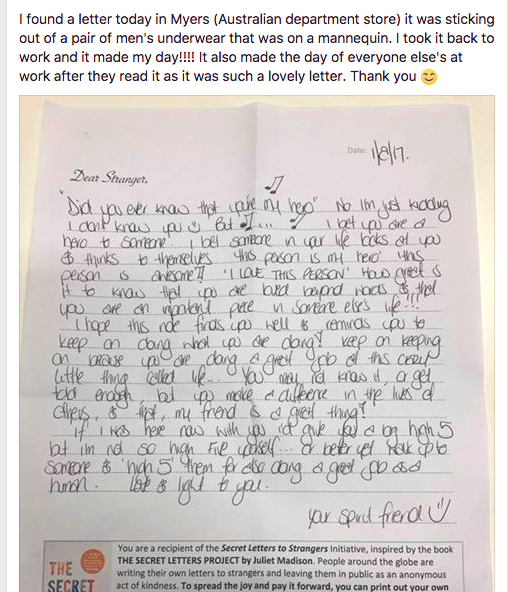 I found a letter today in Myers (Australian department store) it was sticking
out of a pair of men's underwear that was on a mannequin. I took it back to
work and it made my day!!!! It also made the day of everyone else's at
work after they read it as it was such a lovely letter. Thank you 😊
Date: 1/8/17.
Dear Stranger,
"Did you ever know that you're my hero" No I'm just kidding
I don't know you But I bet you are a
hero to someone! I bet someone in your life looks at you
& thinks to themselves 'this person is my hero' 'this
person is awesome'!! 'I LOVE THIS PERSON' How great is
it to know that you are loved beyond words & that
you are an important piece in someone else's life!!!
I hope this note finds you well & reminds you to
keep on doing what you are doing! Keep on keeping
on because you are doing a great job at this crazy
little thing called life... You may not know it, or get
told enough, but you make a difference in the lives of
others, & that, my friend is a great thing!
If I was here now with you I'd give you a big high 5
but im not so high five yourself... Or better yet walk up to
someone & 'high 5' them for also doing a great job as a
human. Love & light to you.
your spirit friend
You are a recipient of the Secret Letters to Strangers Initiative, inspired by the book
THE SECRET LETTERS PROJECT by Juliet Madison. People around the globe are
writing their own letters to strangers and leaving them in public as an anonymous
act of kindness. To spread the joy and pay it forward, you can print out your own
THE
SECRET